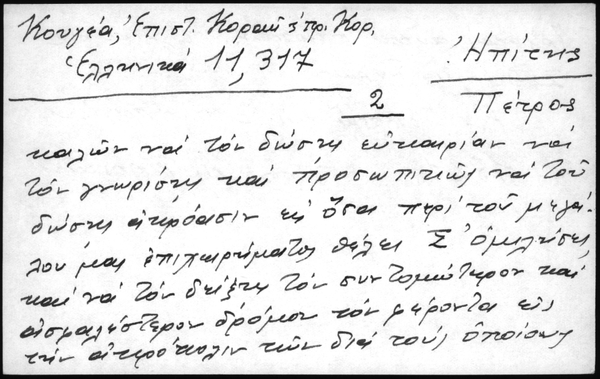 Κουγέα, Ἐπιστ. Κοραῆ & πρ. Κορ.
Ἑλληνικά 11, 317
Ἠπίτης
Πέτρος
2
καλῶν νά τόν δώσῃς εὐκαιρίαν νά
τόν γνωρίσῃς καί προσωπικῶς νά τοῦ
δώσῃς ἀκρόασιν εἰς ὅσα περί τοῦ μεγά-
λου μας ἐπιχειρήματος θέλει Σ' ὁμιλήσει,
καί νά τόν δείξῃς τόν συντομώτερον καί
ἀσφαλέστερον δρόμον τόν φέροντα εἰς
τήν ἀκρόπολιν τῶν διά τούς ὁποίους